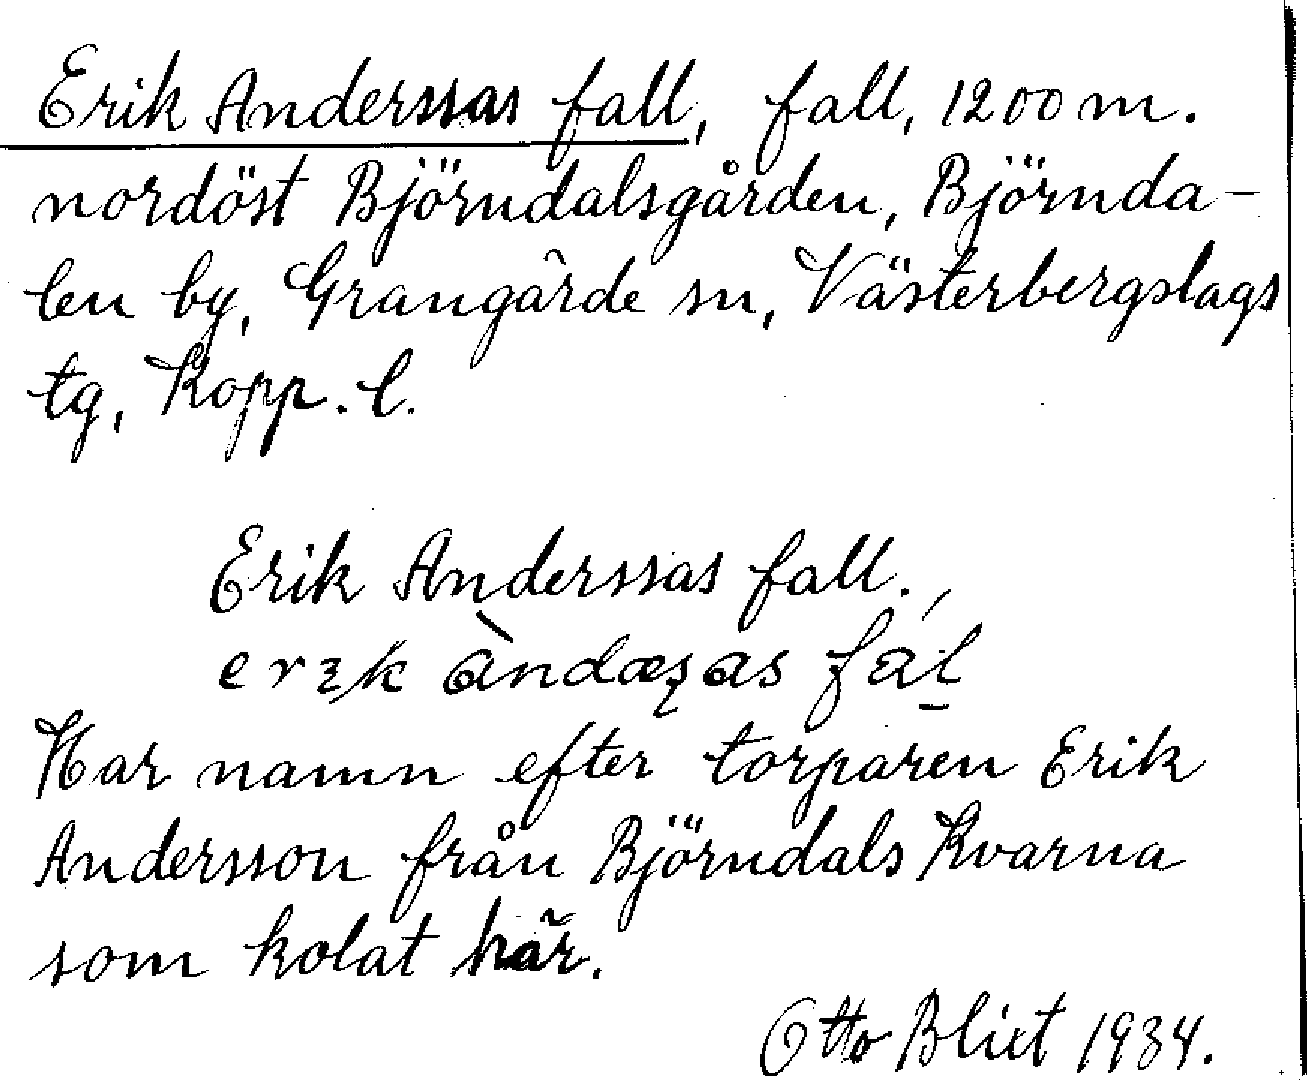 Erik Anderssas fall, fall, 1200 m.
nordöst Björndalsgården, Björnda-
len by, Grangärde sn, Västerbergslags
tg, Kopp. l.
Erik Anderssas fall.
erik àndæʂas fal
Har namn efter torparen Erik
Andersson från Björndals Kvarna
som kolat här.
Otto Blixt 1934.